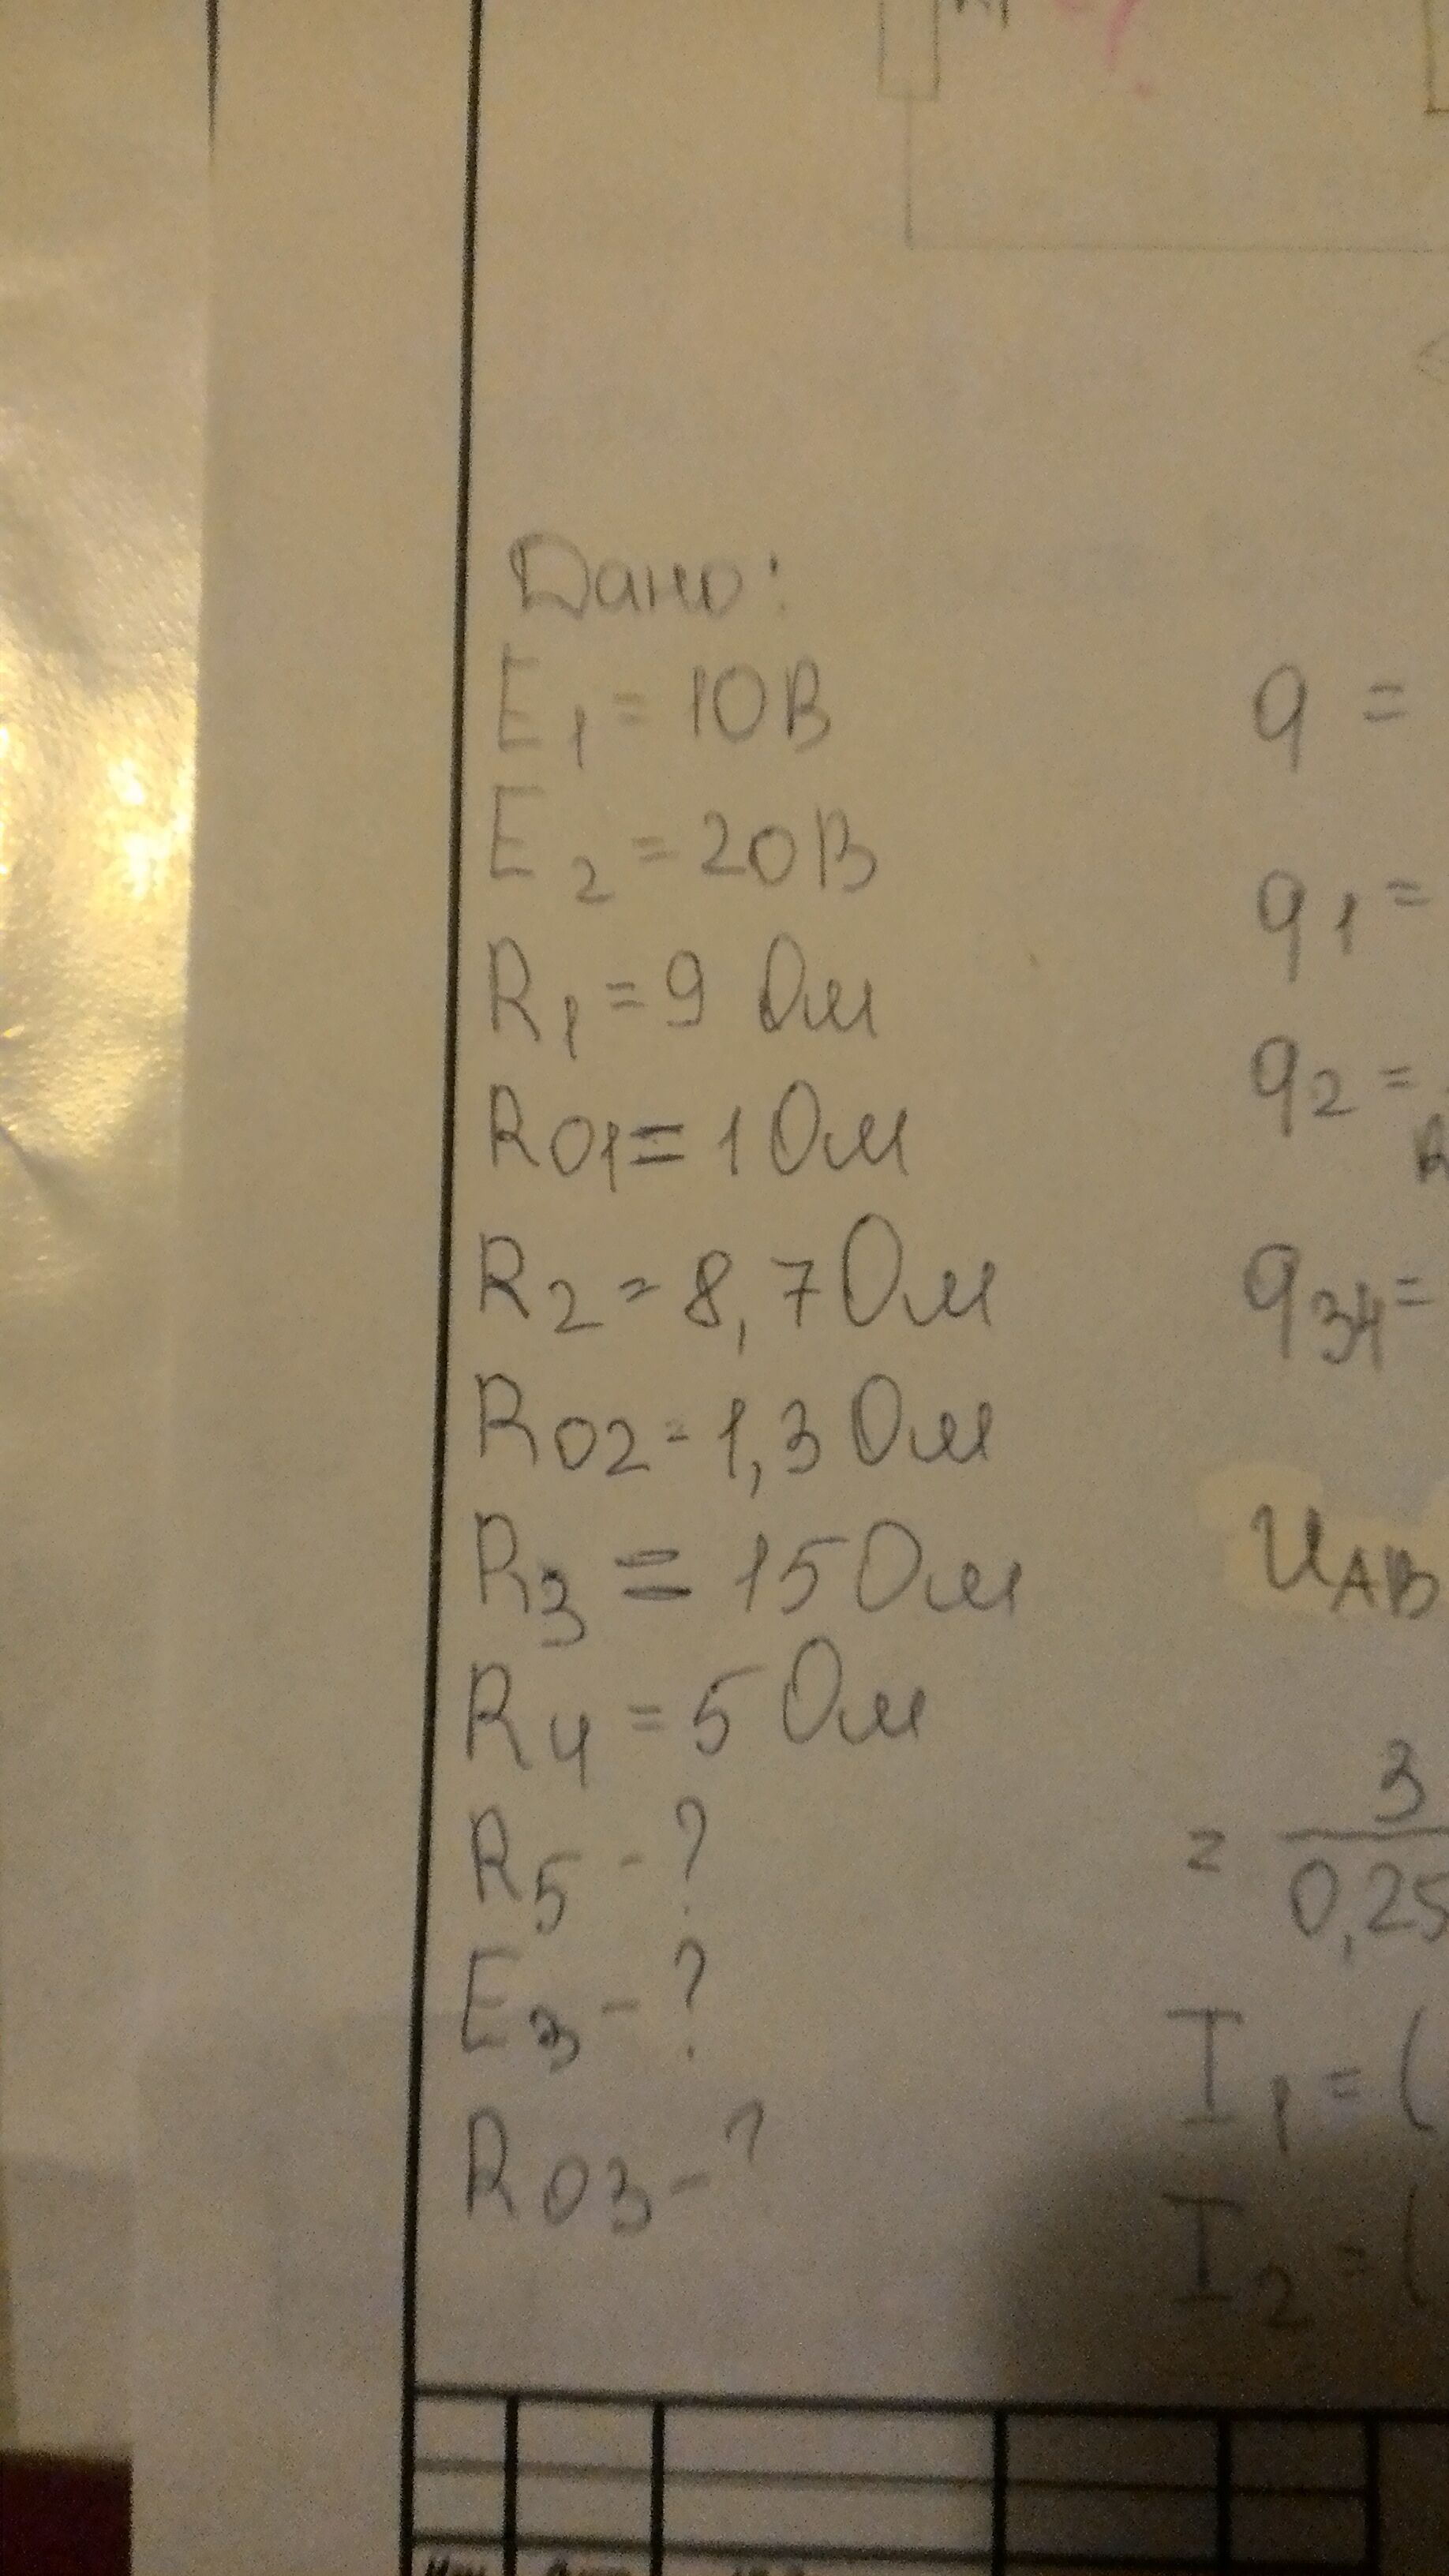 Дано:
E1 = 10В
E2 = 20В
R1 = 9 Ом
R01 = 1 Ом
R2 = 8,7 Ом
R02 = 1,3 Ом
R3 = 15 Ом
R4 = 5 Ом
R5 - ?
E3 - ?
R03 - ?
q =
q1 =
q2 =
R
q34 =
UAB
= 3
0,25
I1 = (
I2 = (